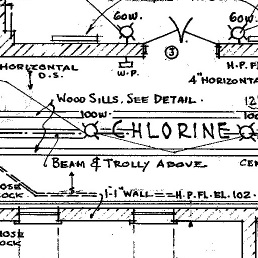 60W. 60W.
3
HORIZONTAL W.P. H.P. FL
D.S. 4" HORIZONTA
WOOD SILLS, SEE DETAIL. 12"
100W 100
CHLORINE
BEAM & TROLLY ABOVE CEN
HOSE
LOCK 1-1" WALL H.P. FL. EL. 102.
HOSE
LOCK